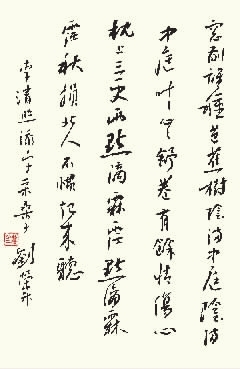 窗前誰種芭蕉樹陰滿中庭陰滿
中庭叶心舒卷有餘情傷心
枕上三更雨點滴霖霪點滴霖
霪愁損北人不慣起來聽
李清照添字采桑子
劉